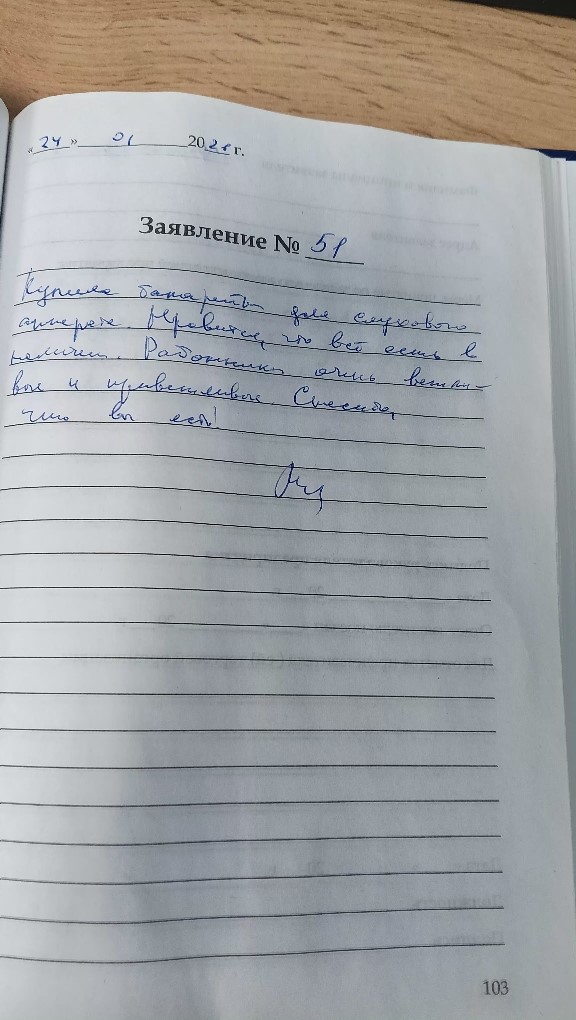 «24» 01 20 г.
Заявление № 51
Купила батарейки для слухового
аппарата. Нравится, что всё есть в
наличии. Работники очень вежли-
вые и приветливые. Спасибо,
что вы есть!
103